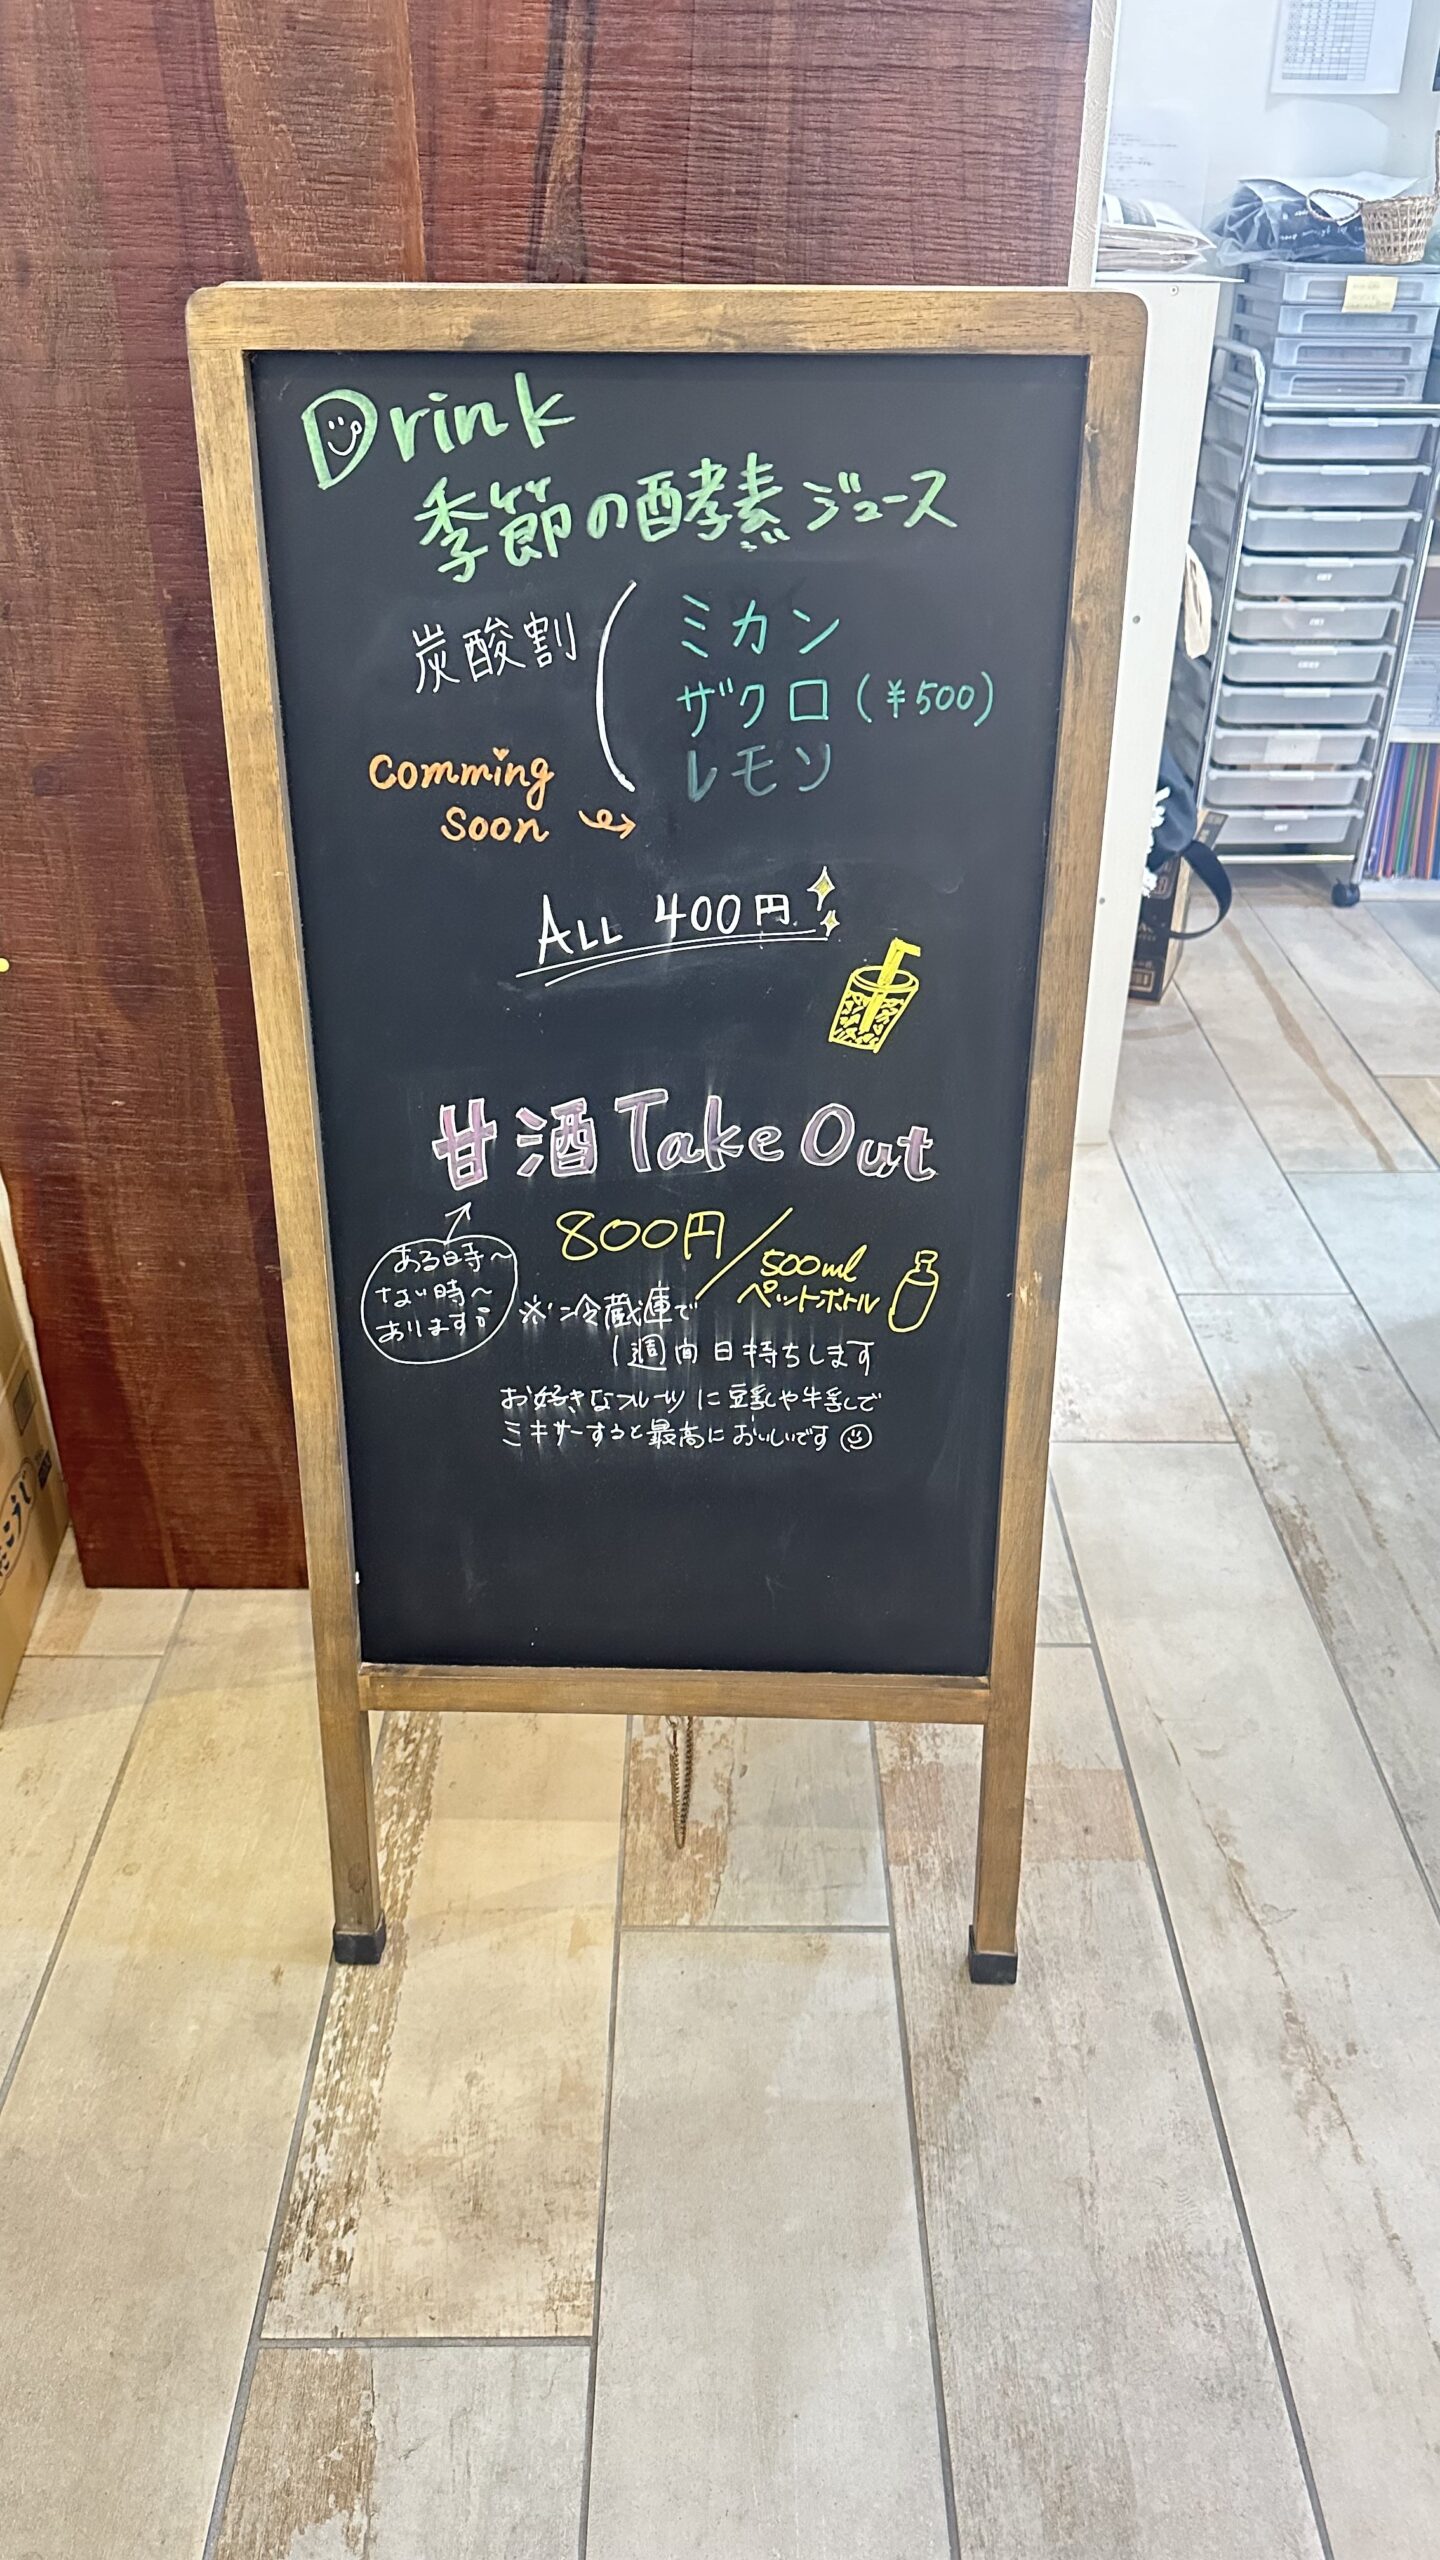 Drink
季節の酵素ジュース
炭酸割
ミカン
ザクロ(¥500)
レモン
Comming
Soon
ALL 400円
甘酒 Take Out
ある時〜
ない時〜
あります
800円/500ml
ペットボトル
※冷蔵庫で
1週間日持ちします
お好きなフルーツに豆乳や牛乳で
ミキサーすると最高においしいです